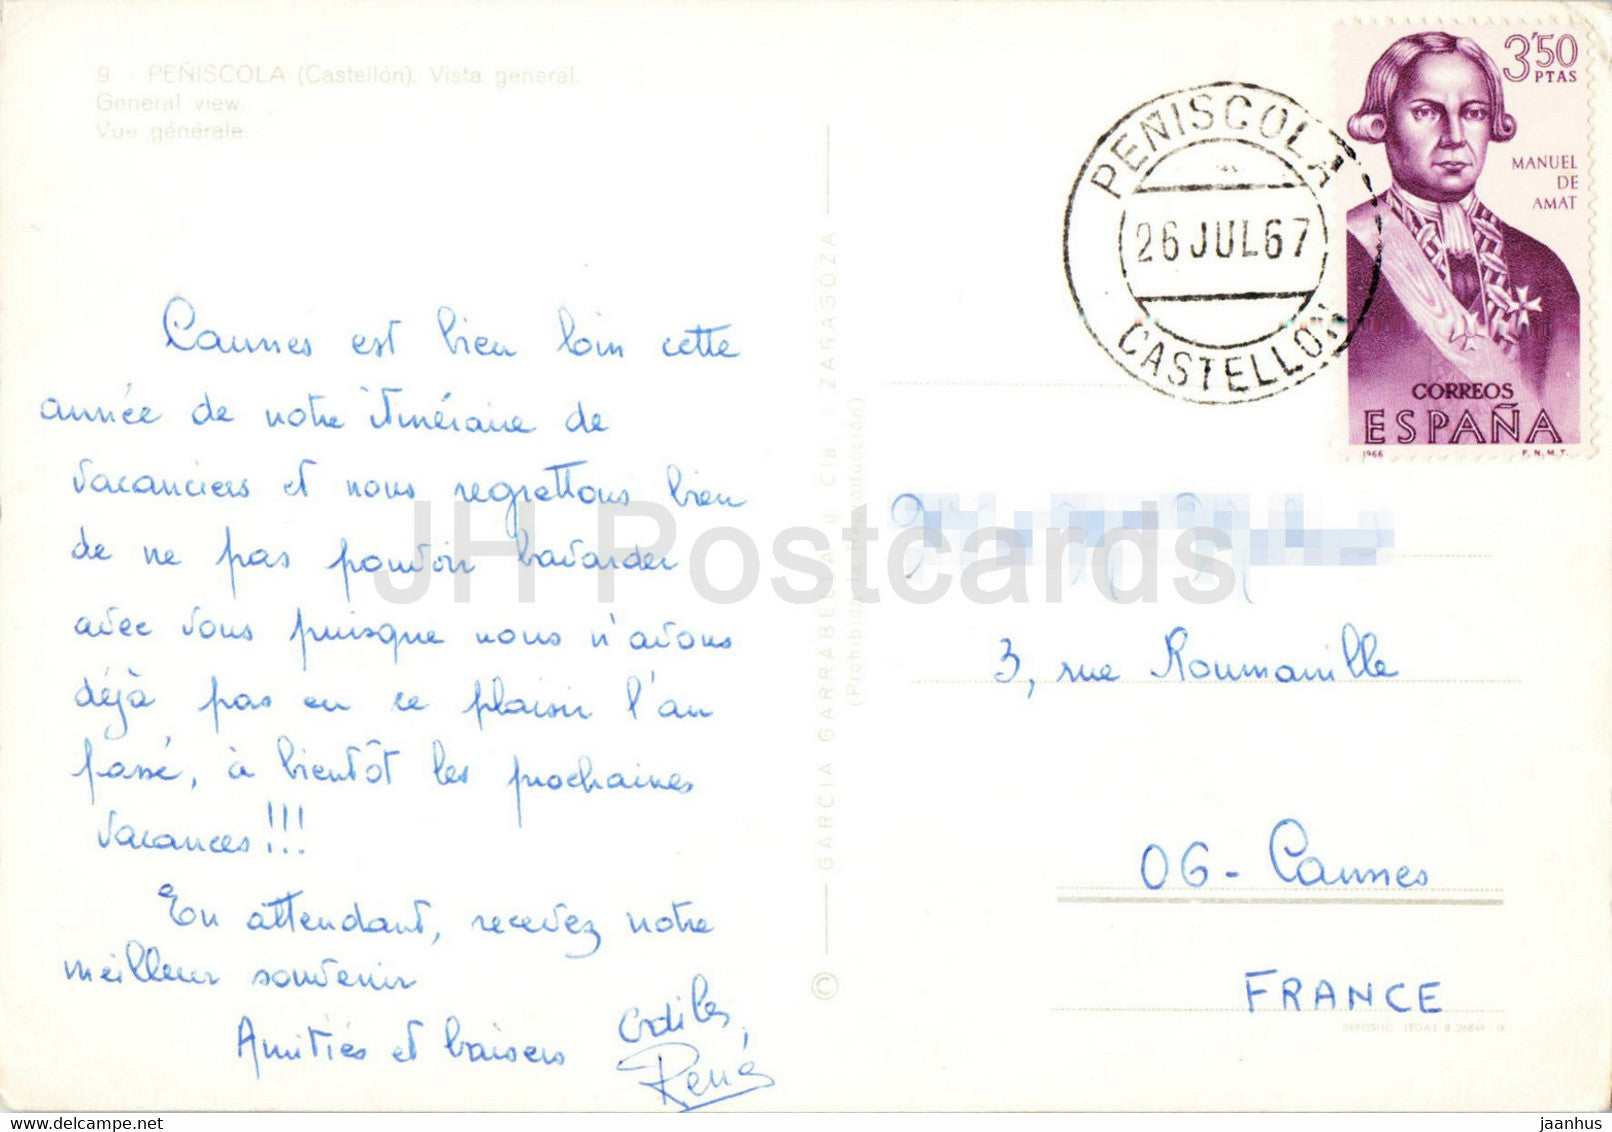 9 - PEÑISCOLA (Castellón). Vista general.
General view.
Vue générale.
Cannes est bien loin cette
année de notre itinéraire de
vacanciers et nous regrettons bien
de ne pas pouvoir bavarder
avec vous puisque nous n'avons
déjà pas eu ce plaisir l'an
passé, à bientôt les prochaines
vacances!!!
En attendant, recevez notre
meilleur souvenir
Amitiés et baisers
René
© GARCIA GARRABELLA y Cía. - ZARAGOZA
(Prohibida la reproducción)
PEÑISCOLA
26 JUL 67
CASTELLON
3'50
PTAS
MANUEL
DE
AMAT
CORREOS
ESPAÑA
1966 F.N.M.T.
3, rue Roumanille
06 - Cannes
FRANCE
DEPOSITO LEGAL B 26849 - IX
JH Postcards
jaanhus @ www.delcampe.net